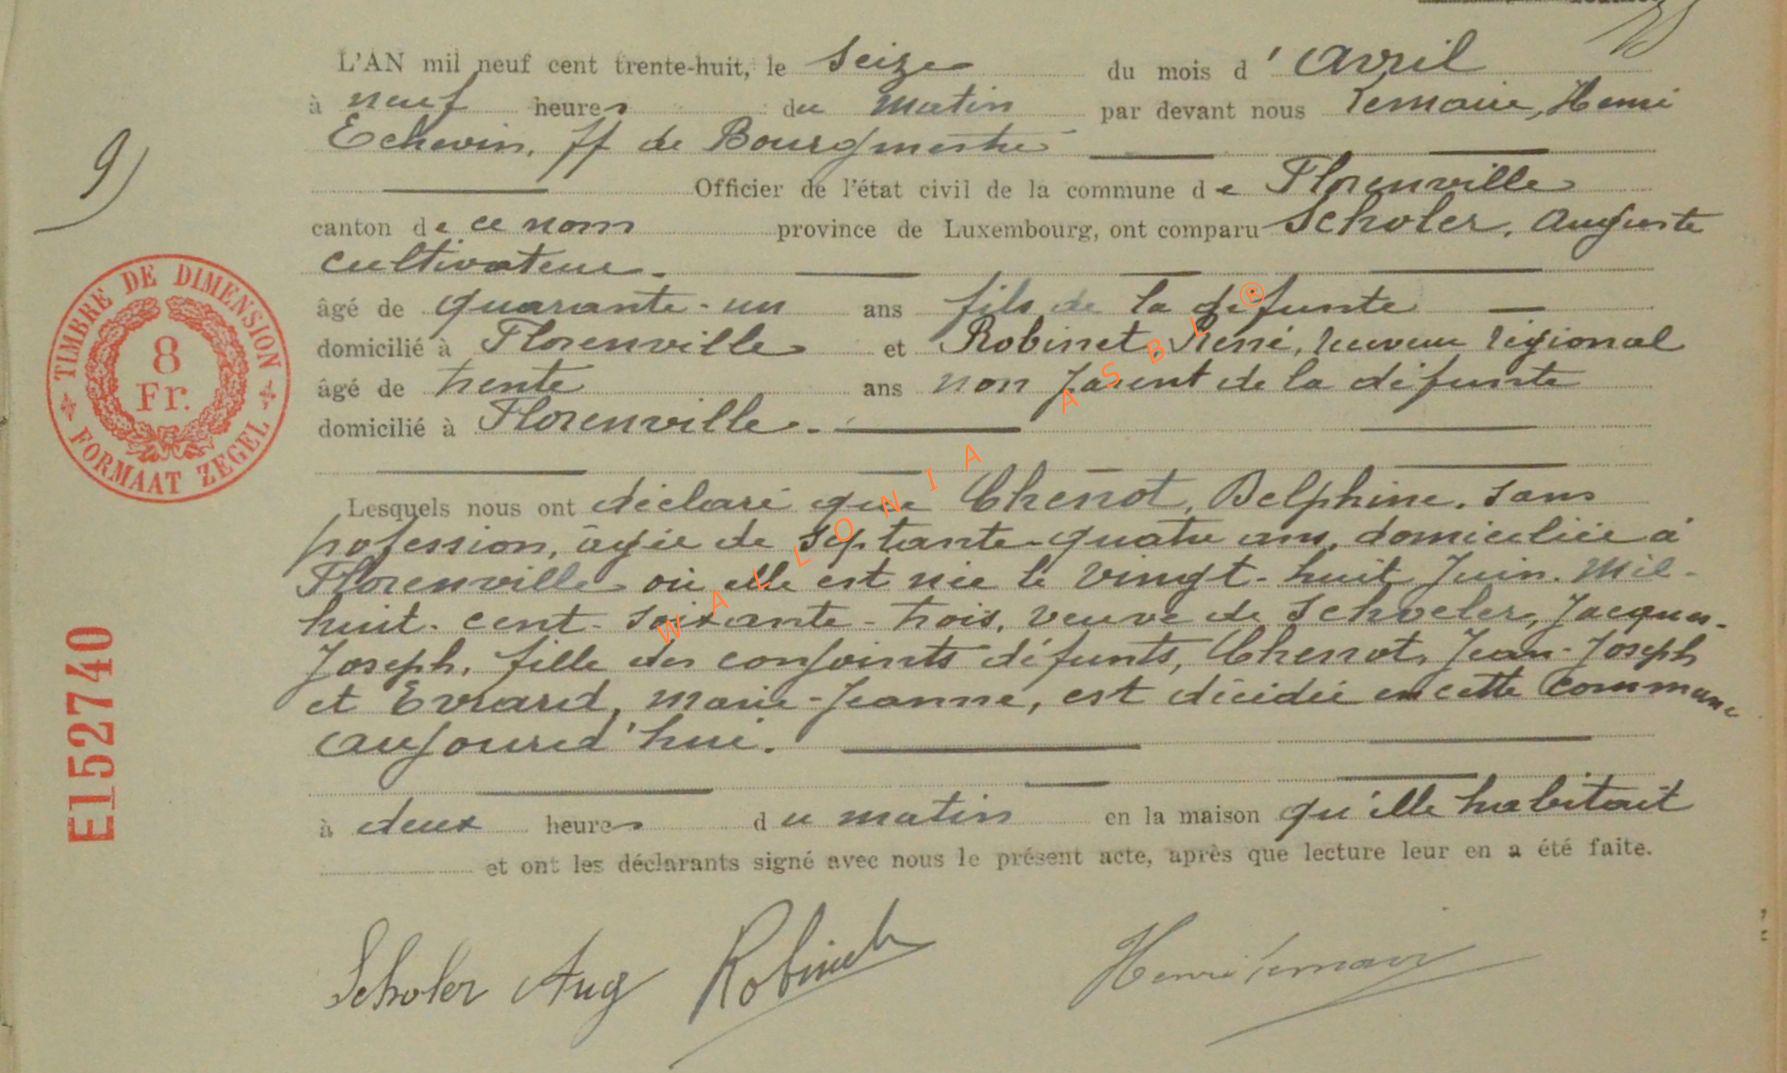 L'AN mil neuf cent trente-huit, le Seize du mois d' Avril
à neuf heures du matin par devant nous Lemaire, Henri
Echevin, ff de Bourgmestre
Officier de l'état civil de la commune de Florenville
canton de ce nom province de Luxembourg, ont comparu Scholer, Auguste
cultivateur.
âgé de quarante-un ans fils de la défunte
domicilié à Florenville et Robinet, René, receveur régional
âgé de trente ans non parent de la défunte
domicilié à Florenville.
Lesquels nous ont déclaré que Chenot, Delphine, sans
profession, âgée de septante-quatre ans, domiciliée à
Florenville où elle est née le vingt-huit Juin mil-
huit-cent-soixante-trois, veuve de Schoeler, Jacques-
Joseph, fille des conjoints défunts, Chenot, Jean-Joseph
et Evrard, Marie-Jeanne, est décédée en cette commune
aujourd'hui.
à deux heures du matin en la maison qu'elle habitait
et ont les déclarants signé avec nous le présent acte, après que lecture leur en a été faite.
Scholer Aug Robinet Henri Lemaire
9)
TIMBRE DE DIMENSION
8
Fr.
FORMAAT ZEGEL
E152740
WALLONIA ASBL ®